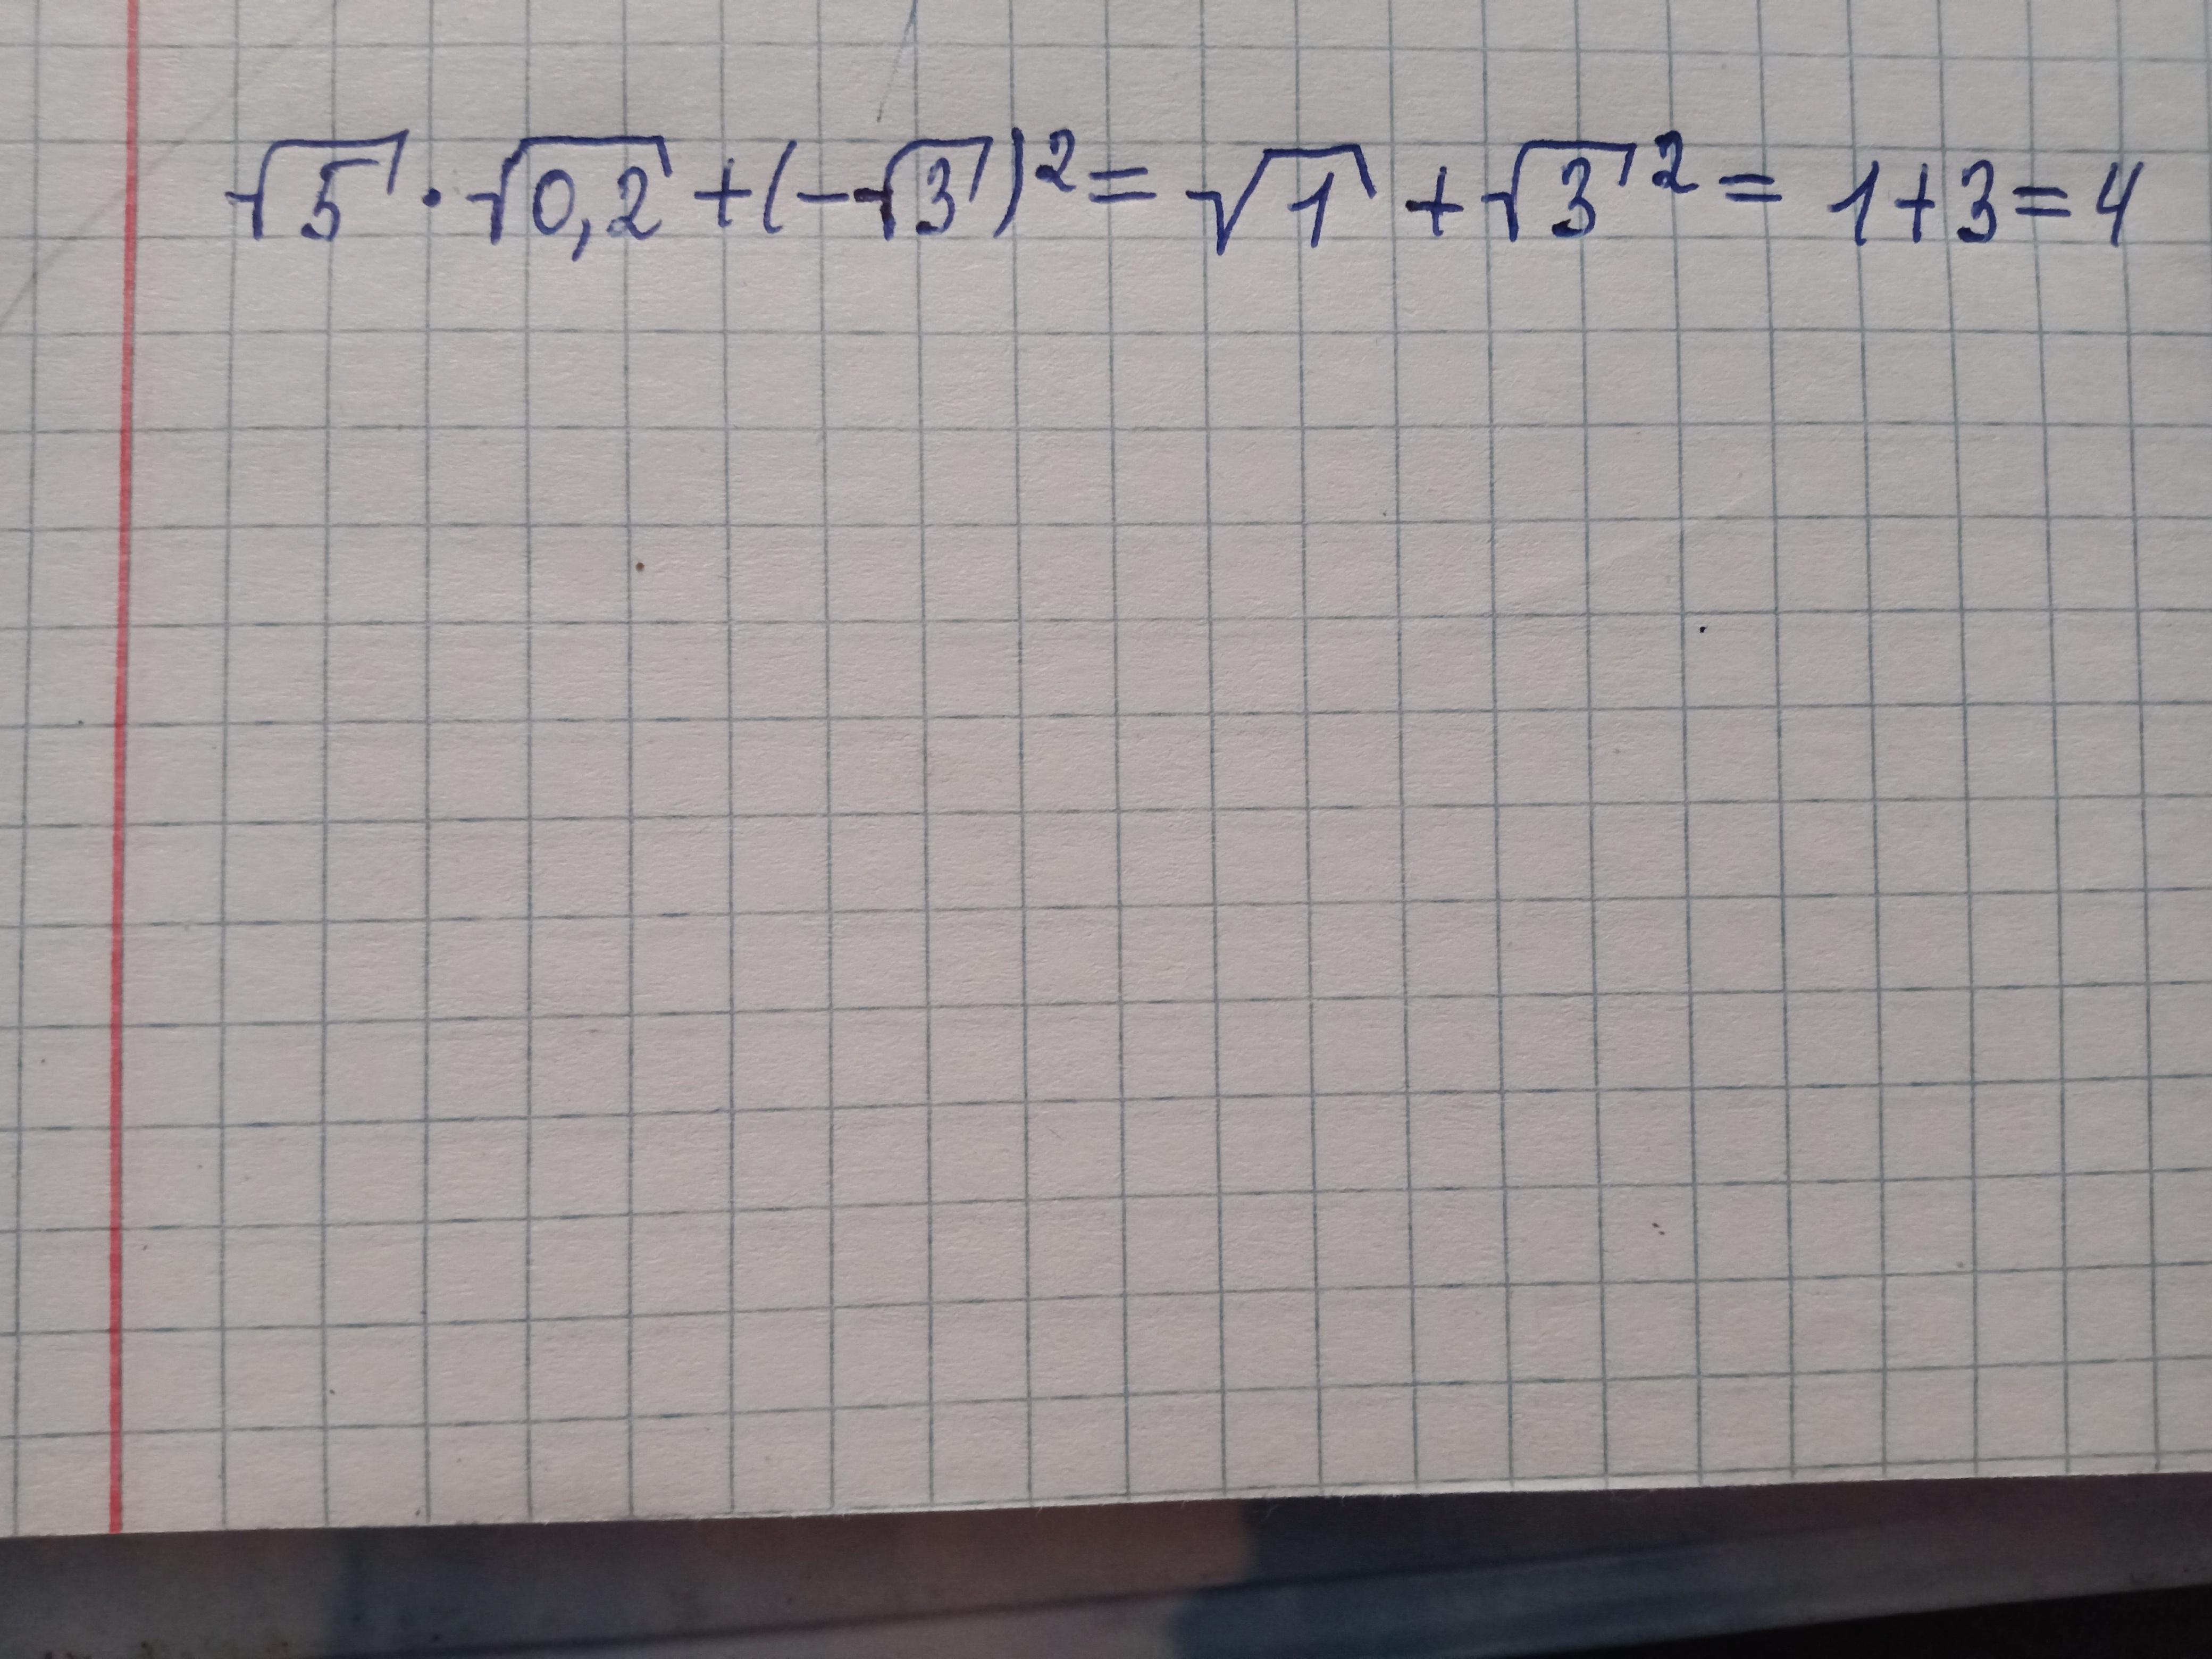 √5 · √0,2 + (-√3)² = √1 + √3² = 1+3=4